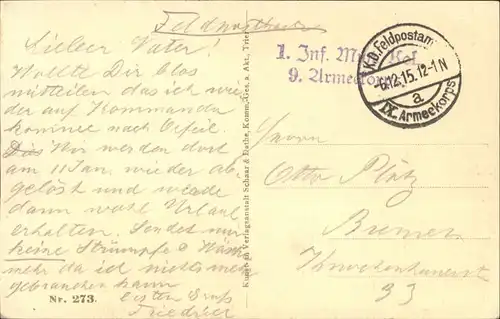 Feldpostkarte
Lieber Vater!
Wollte Dir blos
mitteilen das ich wie-
der auf Kommando
komme nach
Wir werden dort
am 11 Jan. wieder ab-
gelöst und werde
dann wohl Urlaub
erhalten. Sendet nur
keine Strümpfe & Wäsche
mehr da ich nichts mehr
gebrauchen kann
Besten Gruß
Friedrich
Nr. 273.
Kunst- u. Verlagsanstalt Schaar & Dathe, Komm.-Ges. a. Akt., Trier
1. Inf. Mun. Kol.
9. Armeekorps
K.D. Feldpostam
-6.12.15. 12-1 N
a.
IX. Armeekorps
Herrn
Otto Plötz
Bremen
93